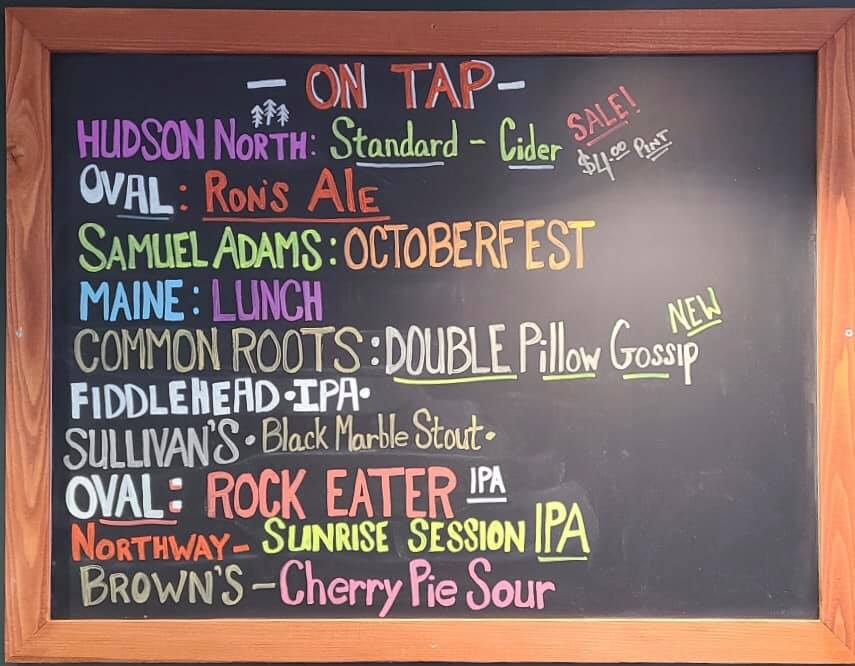 - ON TAP -
HUDSON NORTH: Standard - Cider SALE!
$4.00 PINT
OVAL: RON'S ALE
SAMUEL ADAMS: OCTOBERFEST
MAINE: LUNCH
COMMON ROOTS: DOUBLE Pillow Gossip NEW
FIDDLEHEAD • IPA •
SULLIVAN'S • Black Marble Stout •
OVAL: ROCK EATER IPA
NORTHWAY - SUNRISE SESSION IPA
BROWN'S - Cherry Pie Sour